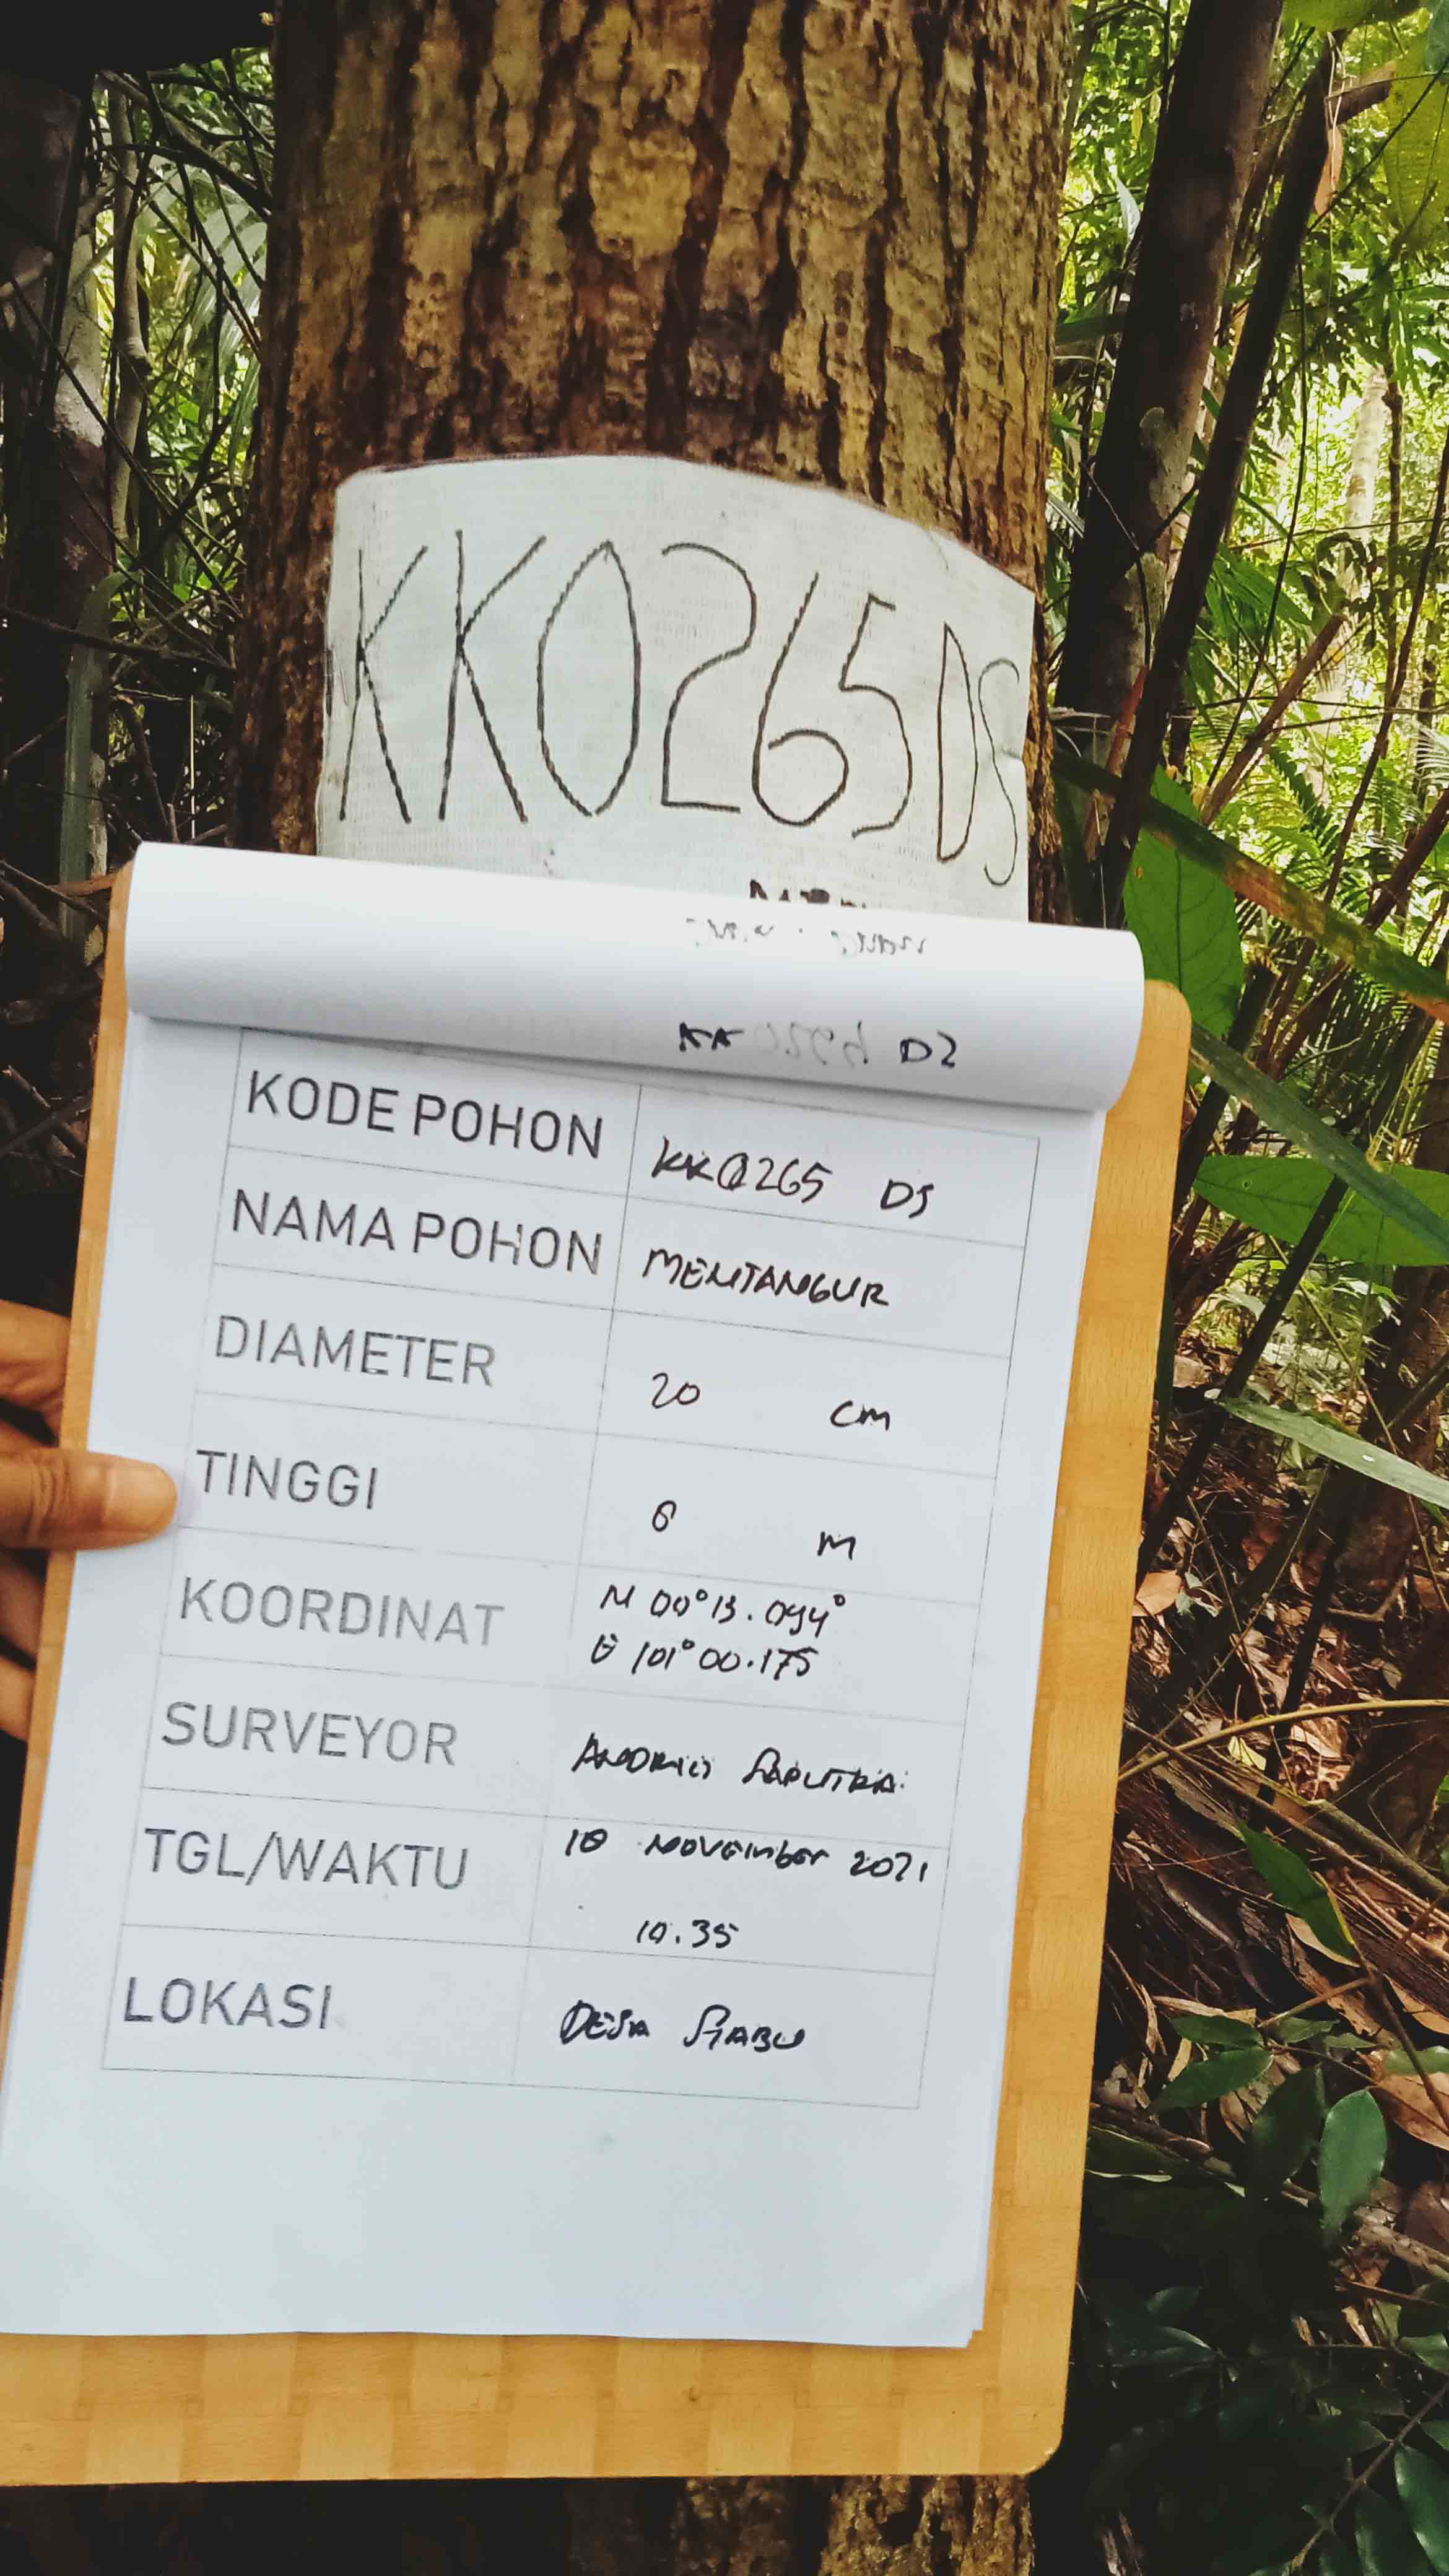 KK0265DS
KODE POHON KK0265 DS
NAMA POHON MENTANGUR
DIAMETER 20 cm
TINGGI 6 M
KOORDINAT N 00°13.094°
E 101°00.175
SURVEYOR SAPUTRA
TGL/WAKTU 10 NOVEMBER 2021
10.35
LOKASI DESA SIABU